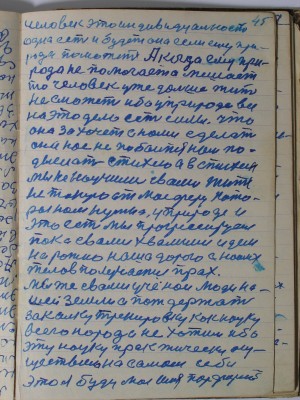 человек это индивидуальность 45
одна есть и будет она если ему при-
рода поможет А когда ему при-
рода не помогает а мешает
то человек уже дольше жить
не сможет ибо у природе все
на это дело есть силы. что
она захочет с нами сделает
они нас не
стихею а в стихии
мы не научили с вами жить
не
нам нужна, у природе и
это есть мы прогрессируем
пока с вами хвалимся идем
на рожно наша дорога с наших
телов получается прах.
мы же с вами учёной люди на-
шей земли а поддержать
закалку тренировку как науку
всего народа не хотим ибо
эту науку практически осу-
ществил на самом себе
это я буду